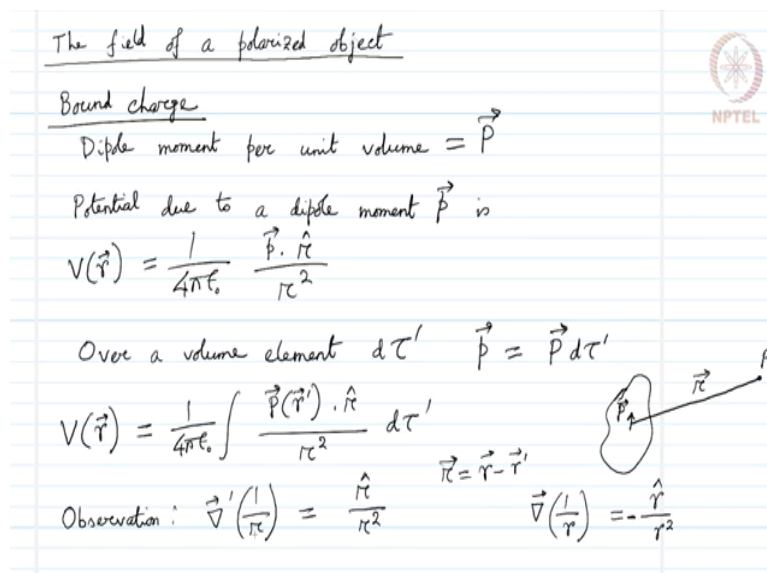 The field of a polarized object
NPTEL
Bound charge
Dipole moment per unit volume = \vec{P}
Potential due to a dipole moment \vec{p} is
V(\vec{r}) = \frac{1}{4\pi\epsilon_0} \frac{\vec{p} \cdot \hat{r}}{r^2}
Over a volume element dτ' \vec{p} = \vec{P} dτ'
V(\vec{r}) = \frac{1}{4\pi\epsilon_0} \int \frac{\vec{P}(\vec{r}') \cdot \hat{r}}{r^2} dτ'
\vec{P} \vec{r}
\vec{r} = \vec{r} - \vec{r}'
Observation: \vec{∇}'(\frac{1}{r}) = \frac{\hat{r}}{r^2} \vec{∇}(\frac{1}{r}) = -\frac{\hat{r}}{r^2}